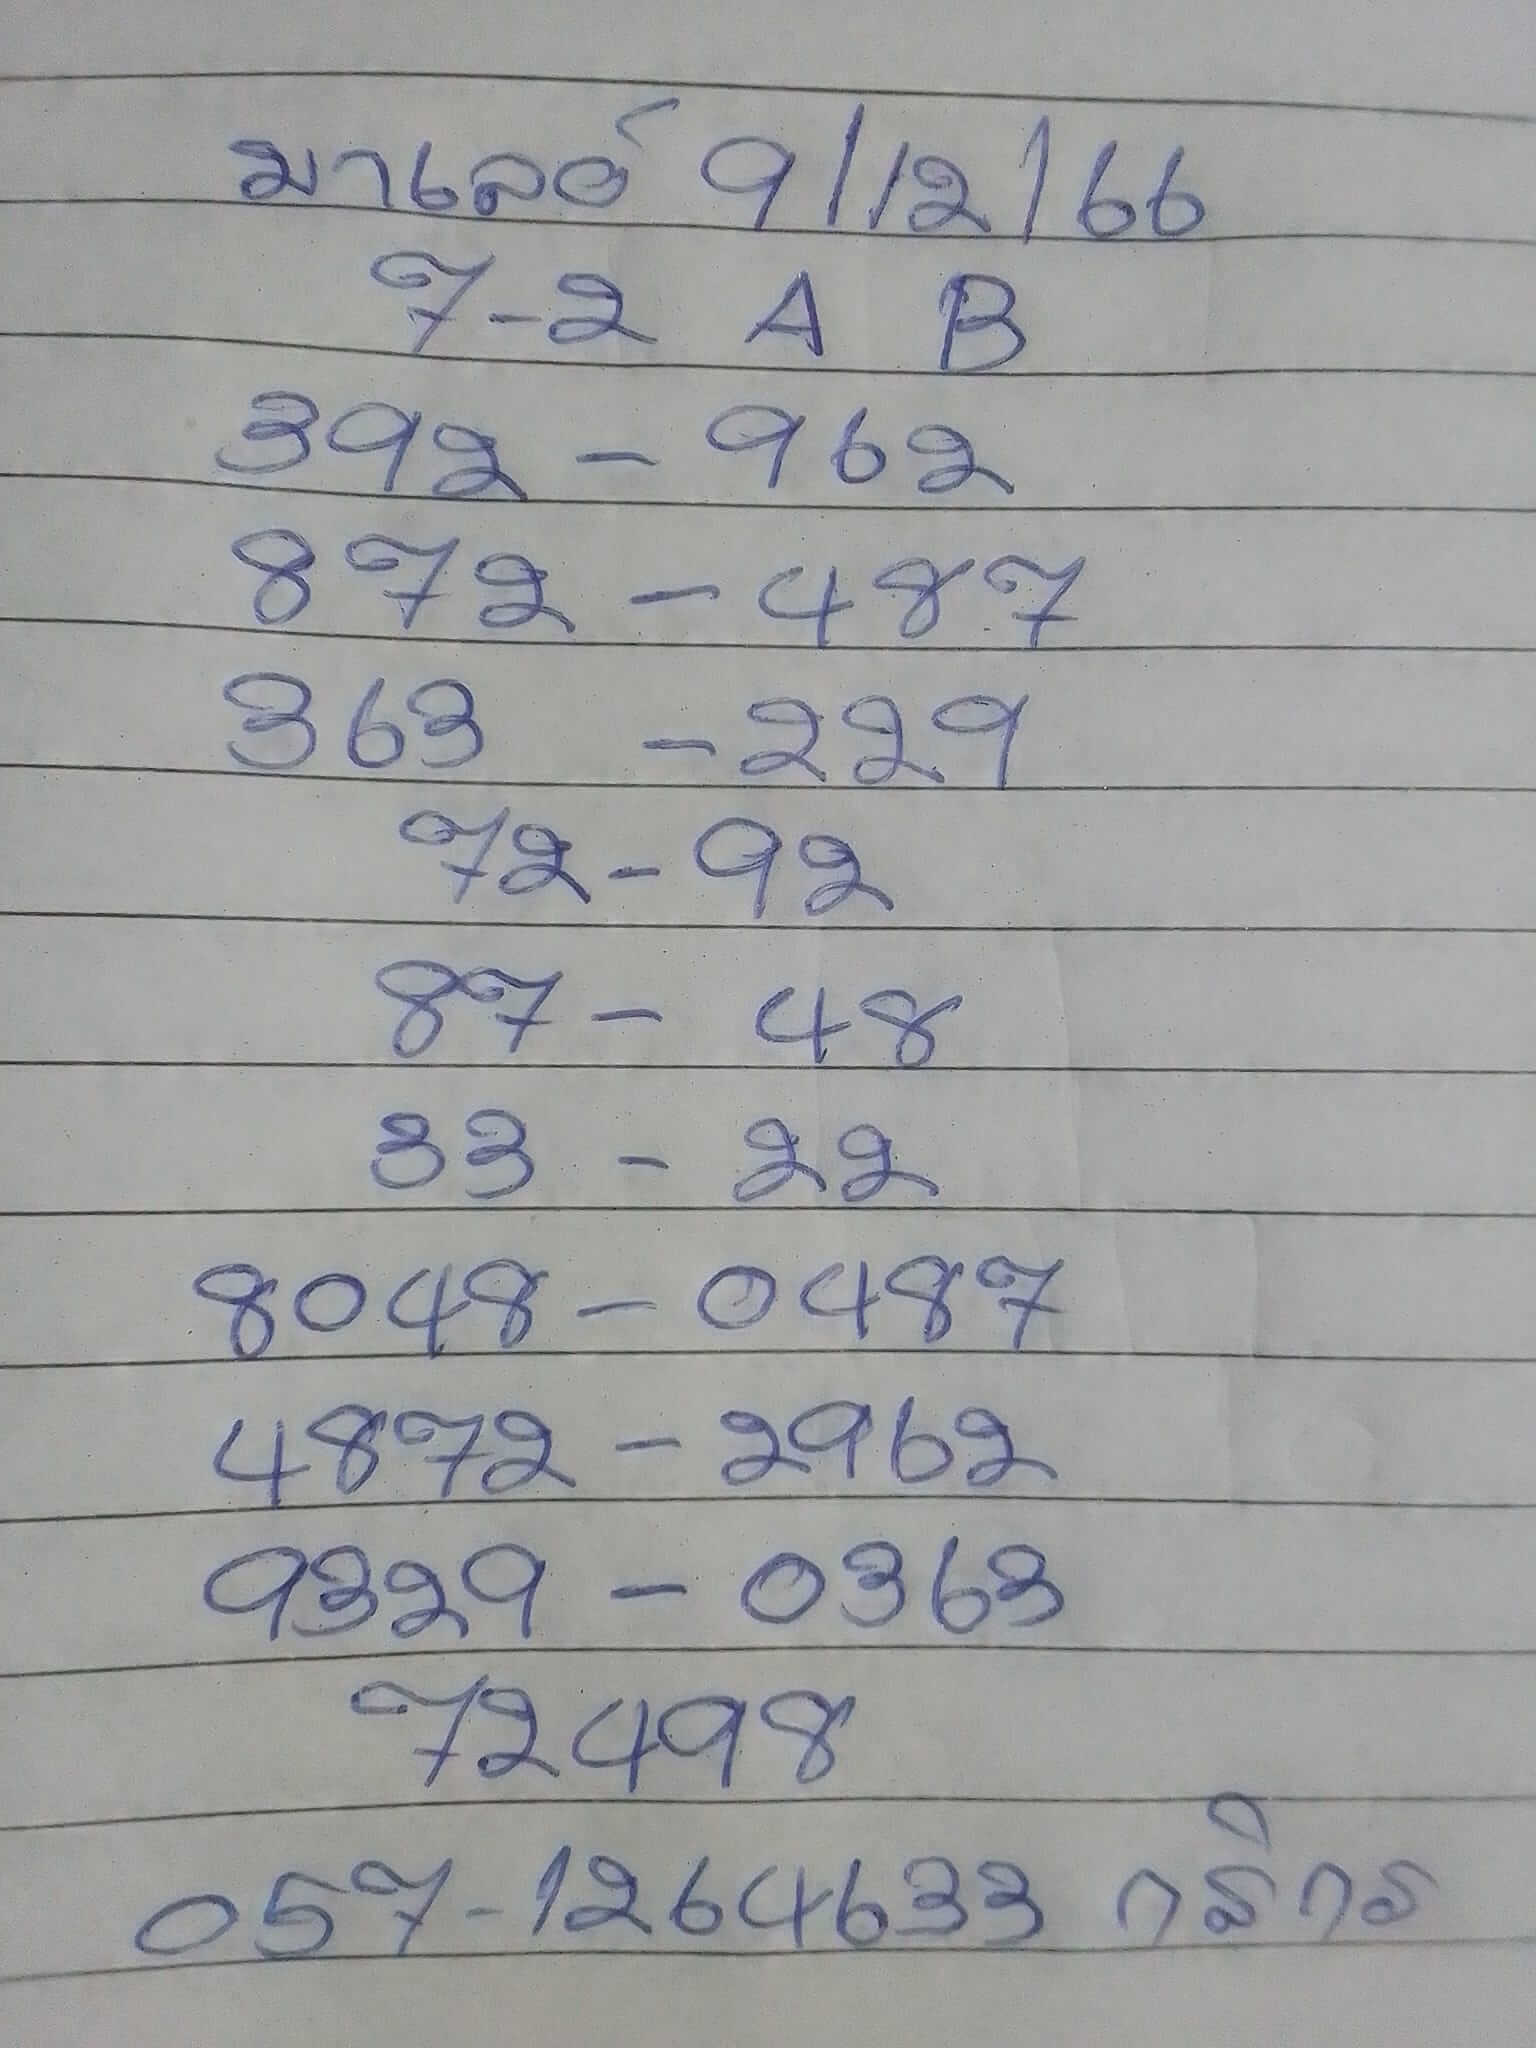 มาเลย์ 9/12/66
7-2 A B
392 - 962
872 - 487
363 - 229
72 - 92
87 - 48
33 - 22
8048 - 0487
4872 - 2962
9329 - 0363
72498
057-1264633 กสิกร